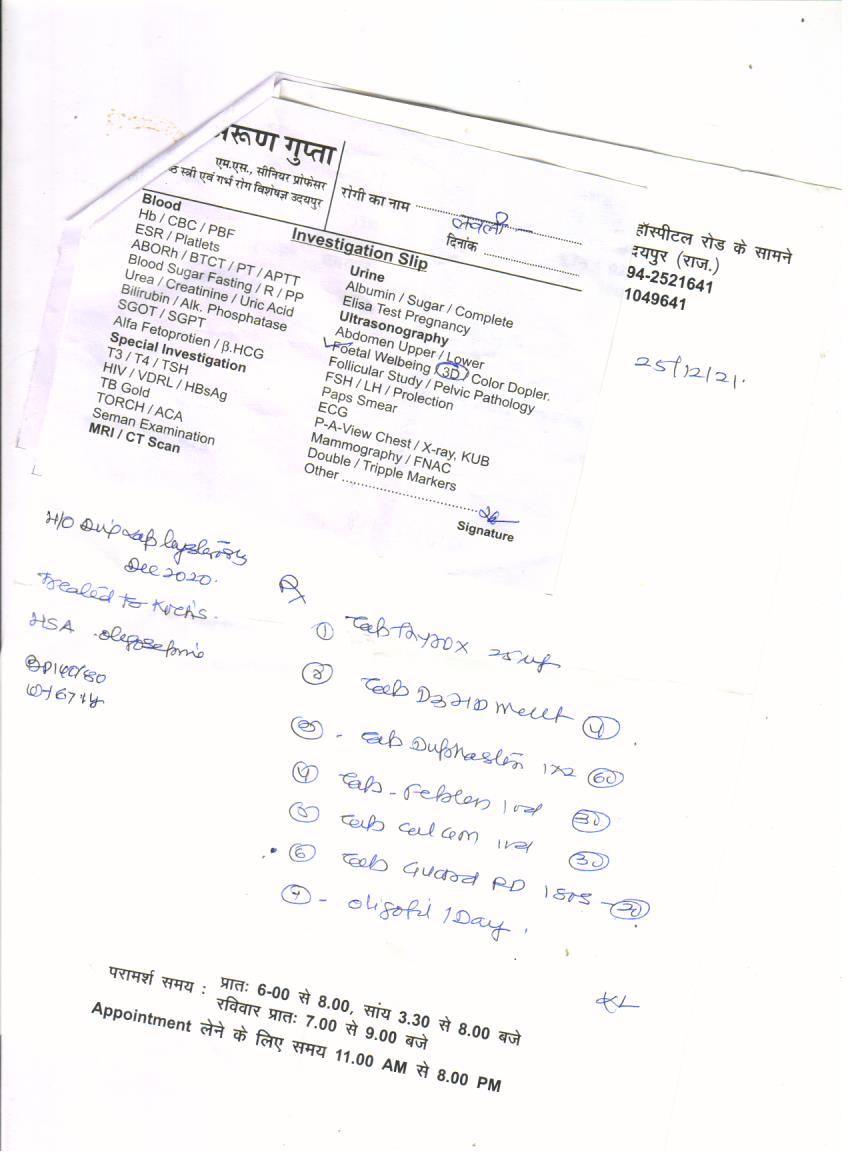 अरूण गुप्ता
एम.एस., सीनियर प्रोफेसर
स्त्री एवं गर्भ रोग विशेषज्ञ उदयपुर
रोगी का नाम ..........
दिनांक ..........
Investigation Slip
Blood
Hb / CBC / PBF
ESR / Platlets
ABORh / BTCT / PT / APTT
Blood Sugar Fasting / R / PP
Urea / Creatinine / Uric Acid
Bilirubin / Alk. Phosphatase
SGOT / SGPT
Alfa Fetoprotien / β.HCG
Special Investigation
T3 / T4 / TSH
HIV / VDRL / HBsAg
TB Gold
TORCH / ACA
Seman Examination
MRI / CT Scan
Urine
Albumin / Sugar / Complete
Elisa Test Pregnancy
Ultrasonography
Abdomen Upper / Lower
Foetal Welbeing / 3D / Color Dopler.
Follicular Study / Pelvic Pathology
FSH / LH / Prolection
Paps Smear
ECG
P-A-View Chest / X-ray, KUB
Mammography / FNAC
Double / Tripple Markers
Other ..........
Signature
हॉस्पीटल रोड के सामने
दयपुर (राज.)
94-2521641
1049641
25/12/21.
H/O
Dec 2020.
Treated to Koch's.
HSA
BP 140/80
Rx
① Tab Thyrox 25 ug
② Tab D3 HD Melt ④
③ - Tab Duphaston 1x2 ⑥⓪
④ Tab - 1 od ③⓪
⑤ Tab 1 od ③⓪
⑥ Tab Guard RD 1 SOS - ③⓪
⑦ - 1 Day.
परामर्श समय : प्रातः 6-00 से 8.00, सांय 3.30 से 8.00 बजे
रविवार प्रातः 7.00 से 9.00 बजे
Appointment लेने के लिए समय 11.00 AM से 8.00 PM